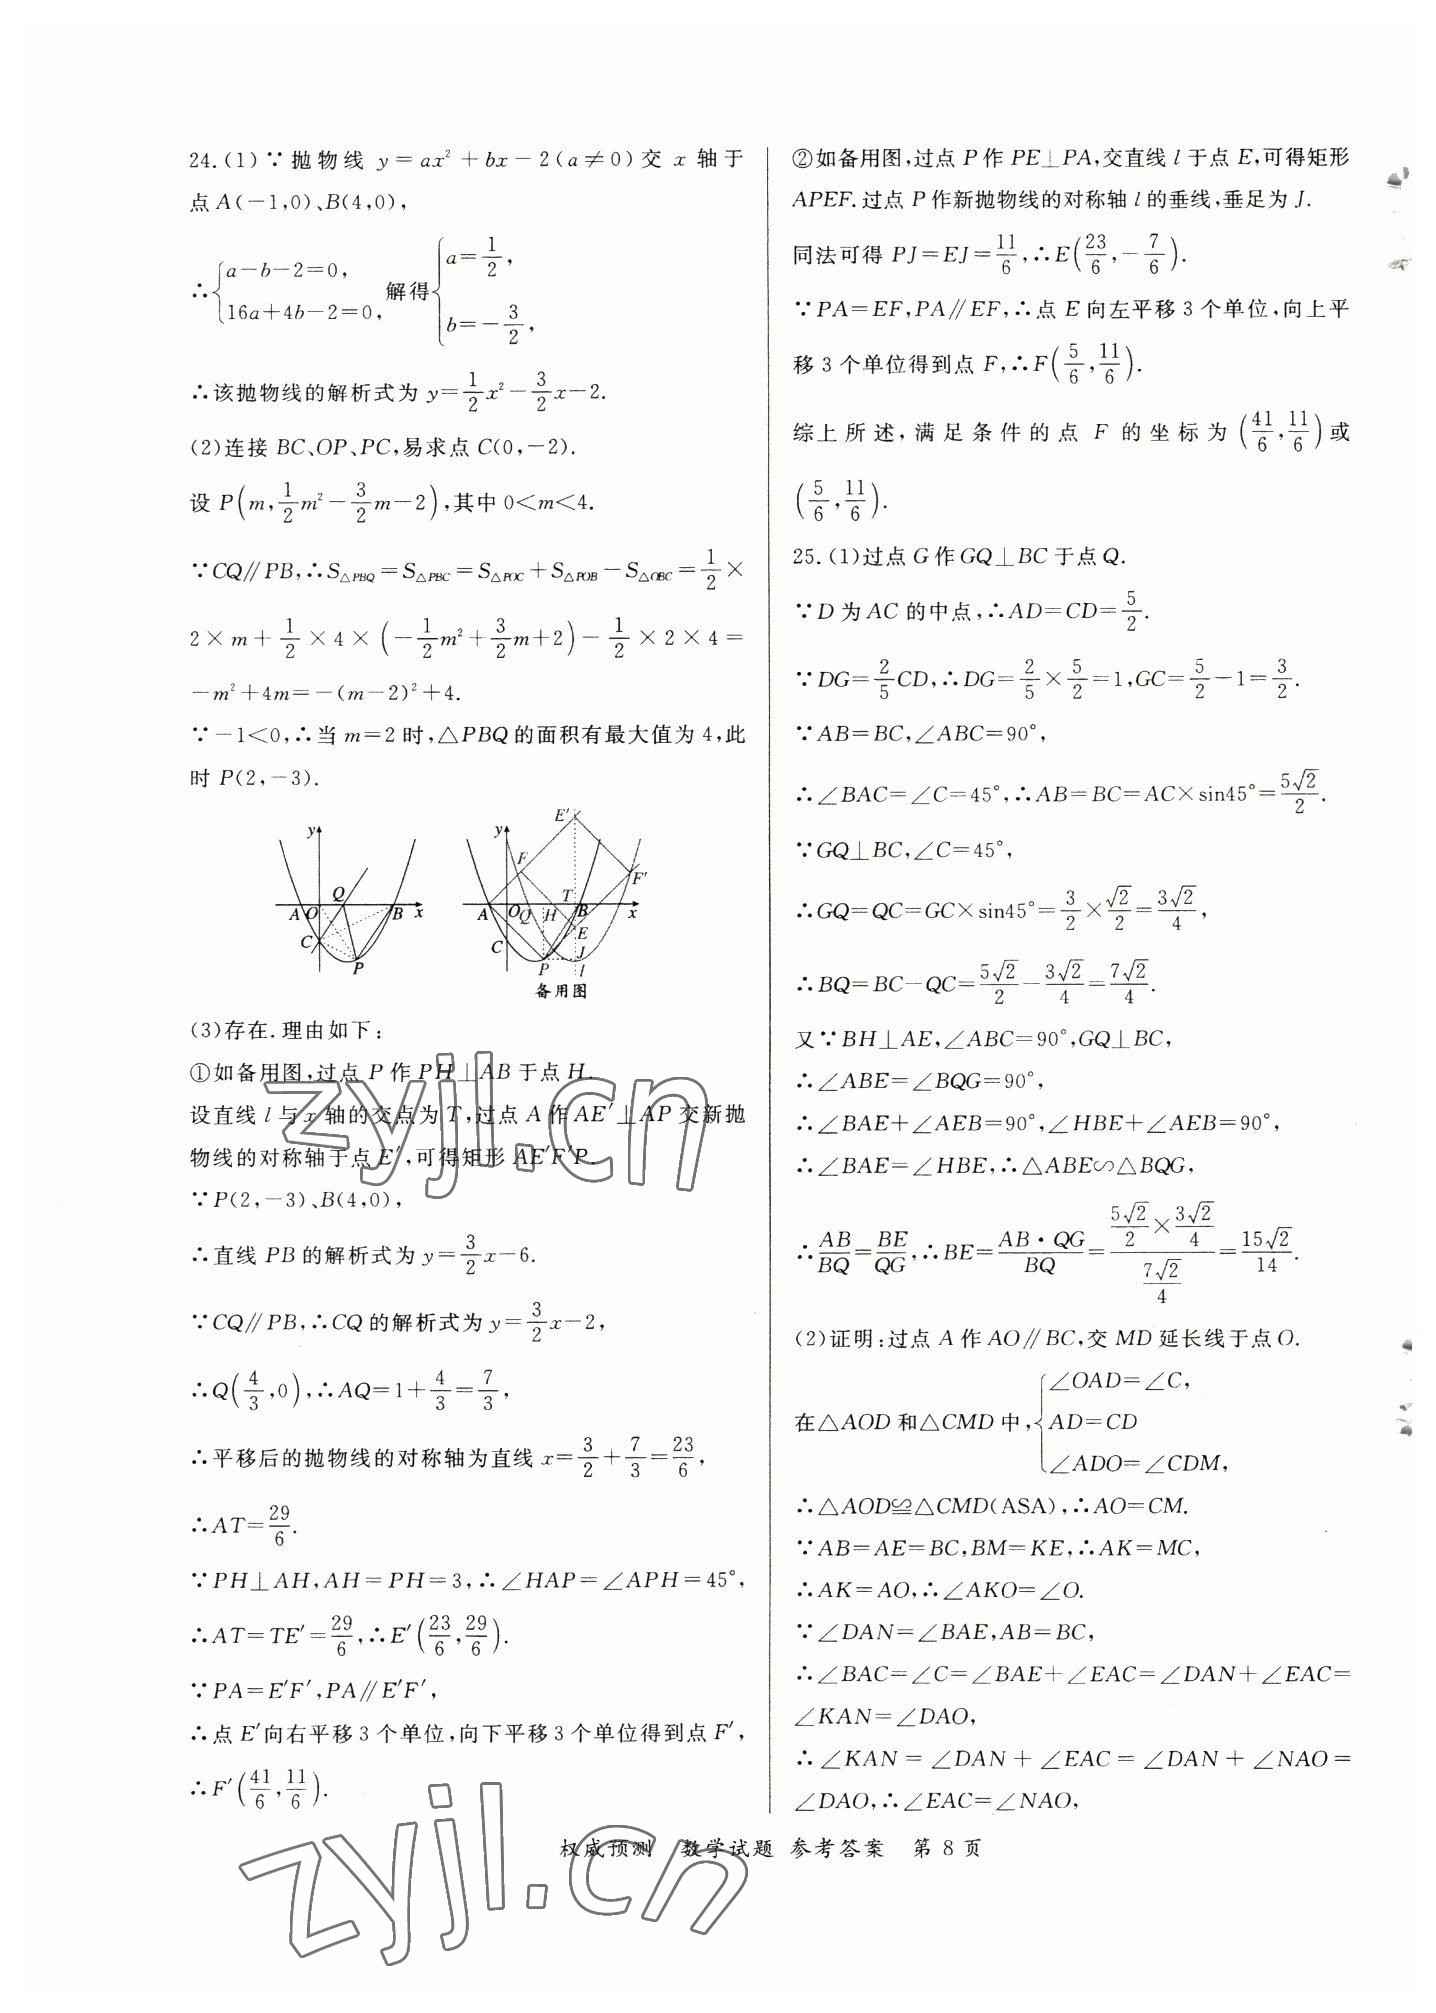 24.(1)∵抛物线 y=ax²+bx-2(a≠0)交 x 轴于
点A(-1,0)、B(4,0),
∴{a-b-2=0, 16a+4b-2=0, 解得{a=1/2, b=-3/2,
∴该抛物线的解析式为 y=1/2x²-3/2x-2.
(2)连接 BC、OP、PC,易求点C(0,-2).
设 P(m,1/2m²-3/2m-2),其中 0<m<4.
∵CQ∥PB,∴S△PBQ=S△PBC=S△POC+S△POB-S△OBC=1/2×
2×m+1/2×4×(-1/2m²+3/2m+2)-1/2×2×4=
-m²+4m=-(m-2)²+4.
∵-1<0,∴当 m=2 时,△PBQ的面积有最大值为 4,此
时 P(2,-3).
y
Q
A O B x
C
P
y E′
F F′
A O Q H T B x
C E
P J l
备用图
(3)存在.理由如下:
①如备用图,过点 P 作 PH⊥AB于点 H.
设直线 l 与 x 轴的交点为 T,过点 A 作 AE′⊥AP 交新抛
物线的对称轴于点 E′,可得矩形 AE′F′P.
∵P(2,-3)、B(4,0),
∴直线 PB 的解析式为 y=3/2x-6.
∵CQ∥PB,∴CQ的解析式为 y=3/2x-2,
∴Q(4/3,0),∴AQ=1+4/3=7/3,
∴平移后的抛物线的对称轴为直线 x=3/2+7/3=23/6,
∴AT=29/6.
∵PH⊥AH,AH=PH=3,∴∠HAP=∠APH=45°,
∴AT=TE′=29/6,∴E′(23/6,29/6).
∵PA=E′F′,PA∥E′F′,
∴点 E′向右平移 3 个单位,向下平移 3 个单位得到点 F′,
∴F′(41/6,11/6).
②如备用图,过点 P 作 PE⊥PA,交直线 l 于点 E,可得矩形
APEF.过点 P 作新抛物线的对称轴 l 的垂线,垂足为 J.
同法可得 PJ=EJ=11/6,∴E(23/6,-7/6).
∵PA=EF,PA∥EF,∴点 E 向左平移 3 个单位,向上平
移 3 个单位得到点 F,∴F(5/6,11/6).
综上所述,满足条件的点 F 的坐标为(41/6,11/6)或
(5/6,11/6).
25.(1)过点 G 作 GQ⊥BC 于点 Q.
∵D 为 AC 的中点,∴AD=CD=5/2.
∵DG=2/5CD,∴DG=2/5×5/2=1,GC=5/2-1=3/2.
∵AB=BC,∠ABC=90°,
∴∠BAC=∠C=45°,∴AB=BC=AC×sin45°=5√2/2.
∵GQ⊥BC,∠C=45°,
∴GQ=QC=GC×sin45°=3/2×√2/2=3√2/4,
∴BQ=BC-QC=5√2/2-3√2/4=7√2/4.
又∵BH⊥AE,∠ABC=90°,GQ⊥BC,
∴∠ABE=∠BQG=90°,
∴∠BAE+∠AEB=90°,∠HBE+∠AEB=90°,
∴∠BAE=∠HBE,∴△ABE∽△BQG,
∴AB/BQ=BE/QG,∴BE=AB·QG/BQ=(5√2/2×3√2/4)/(7√2/4)=15√2/14.
(2)证明:过点 A 作 AO∥BC,交 MD 延长线于点 O.
在△AOD 和△CMD 中,{∠OAD=∠C, AD=CD ∠ADO=∠CDM,
∴△AOD≌△CMD(ASA),∴AO=CM.
∵AB=AE=BC,BM=KE,∴AK=MC,
∴AK=AO,∴∠AKO=∠O.
∵∠DAN=∠BAE,AB=BC,
∴∠BAC=∠C=∠BAE+∠EAC=∠DAN+∠EAC=
∠KAN=∠DAO,
∴∠KAN=∠DAN+∠EAC=∠DAN+∠NAO=
∠DAO,∴∠EAC=∠NAO,
权威预测 数学试题 参考答案 第 8 页
zyjl.cn
zyjl.cn